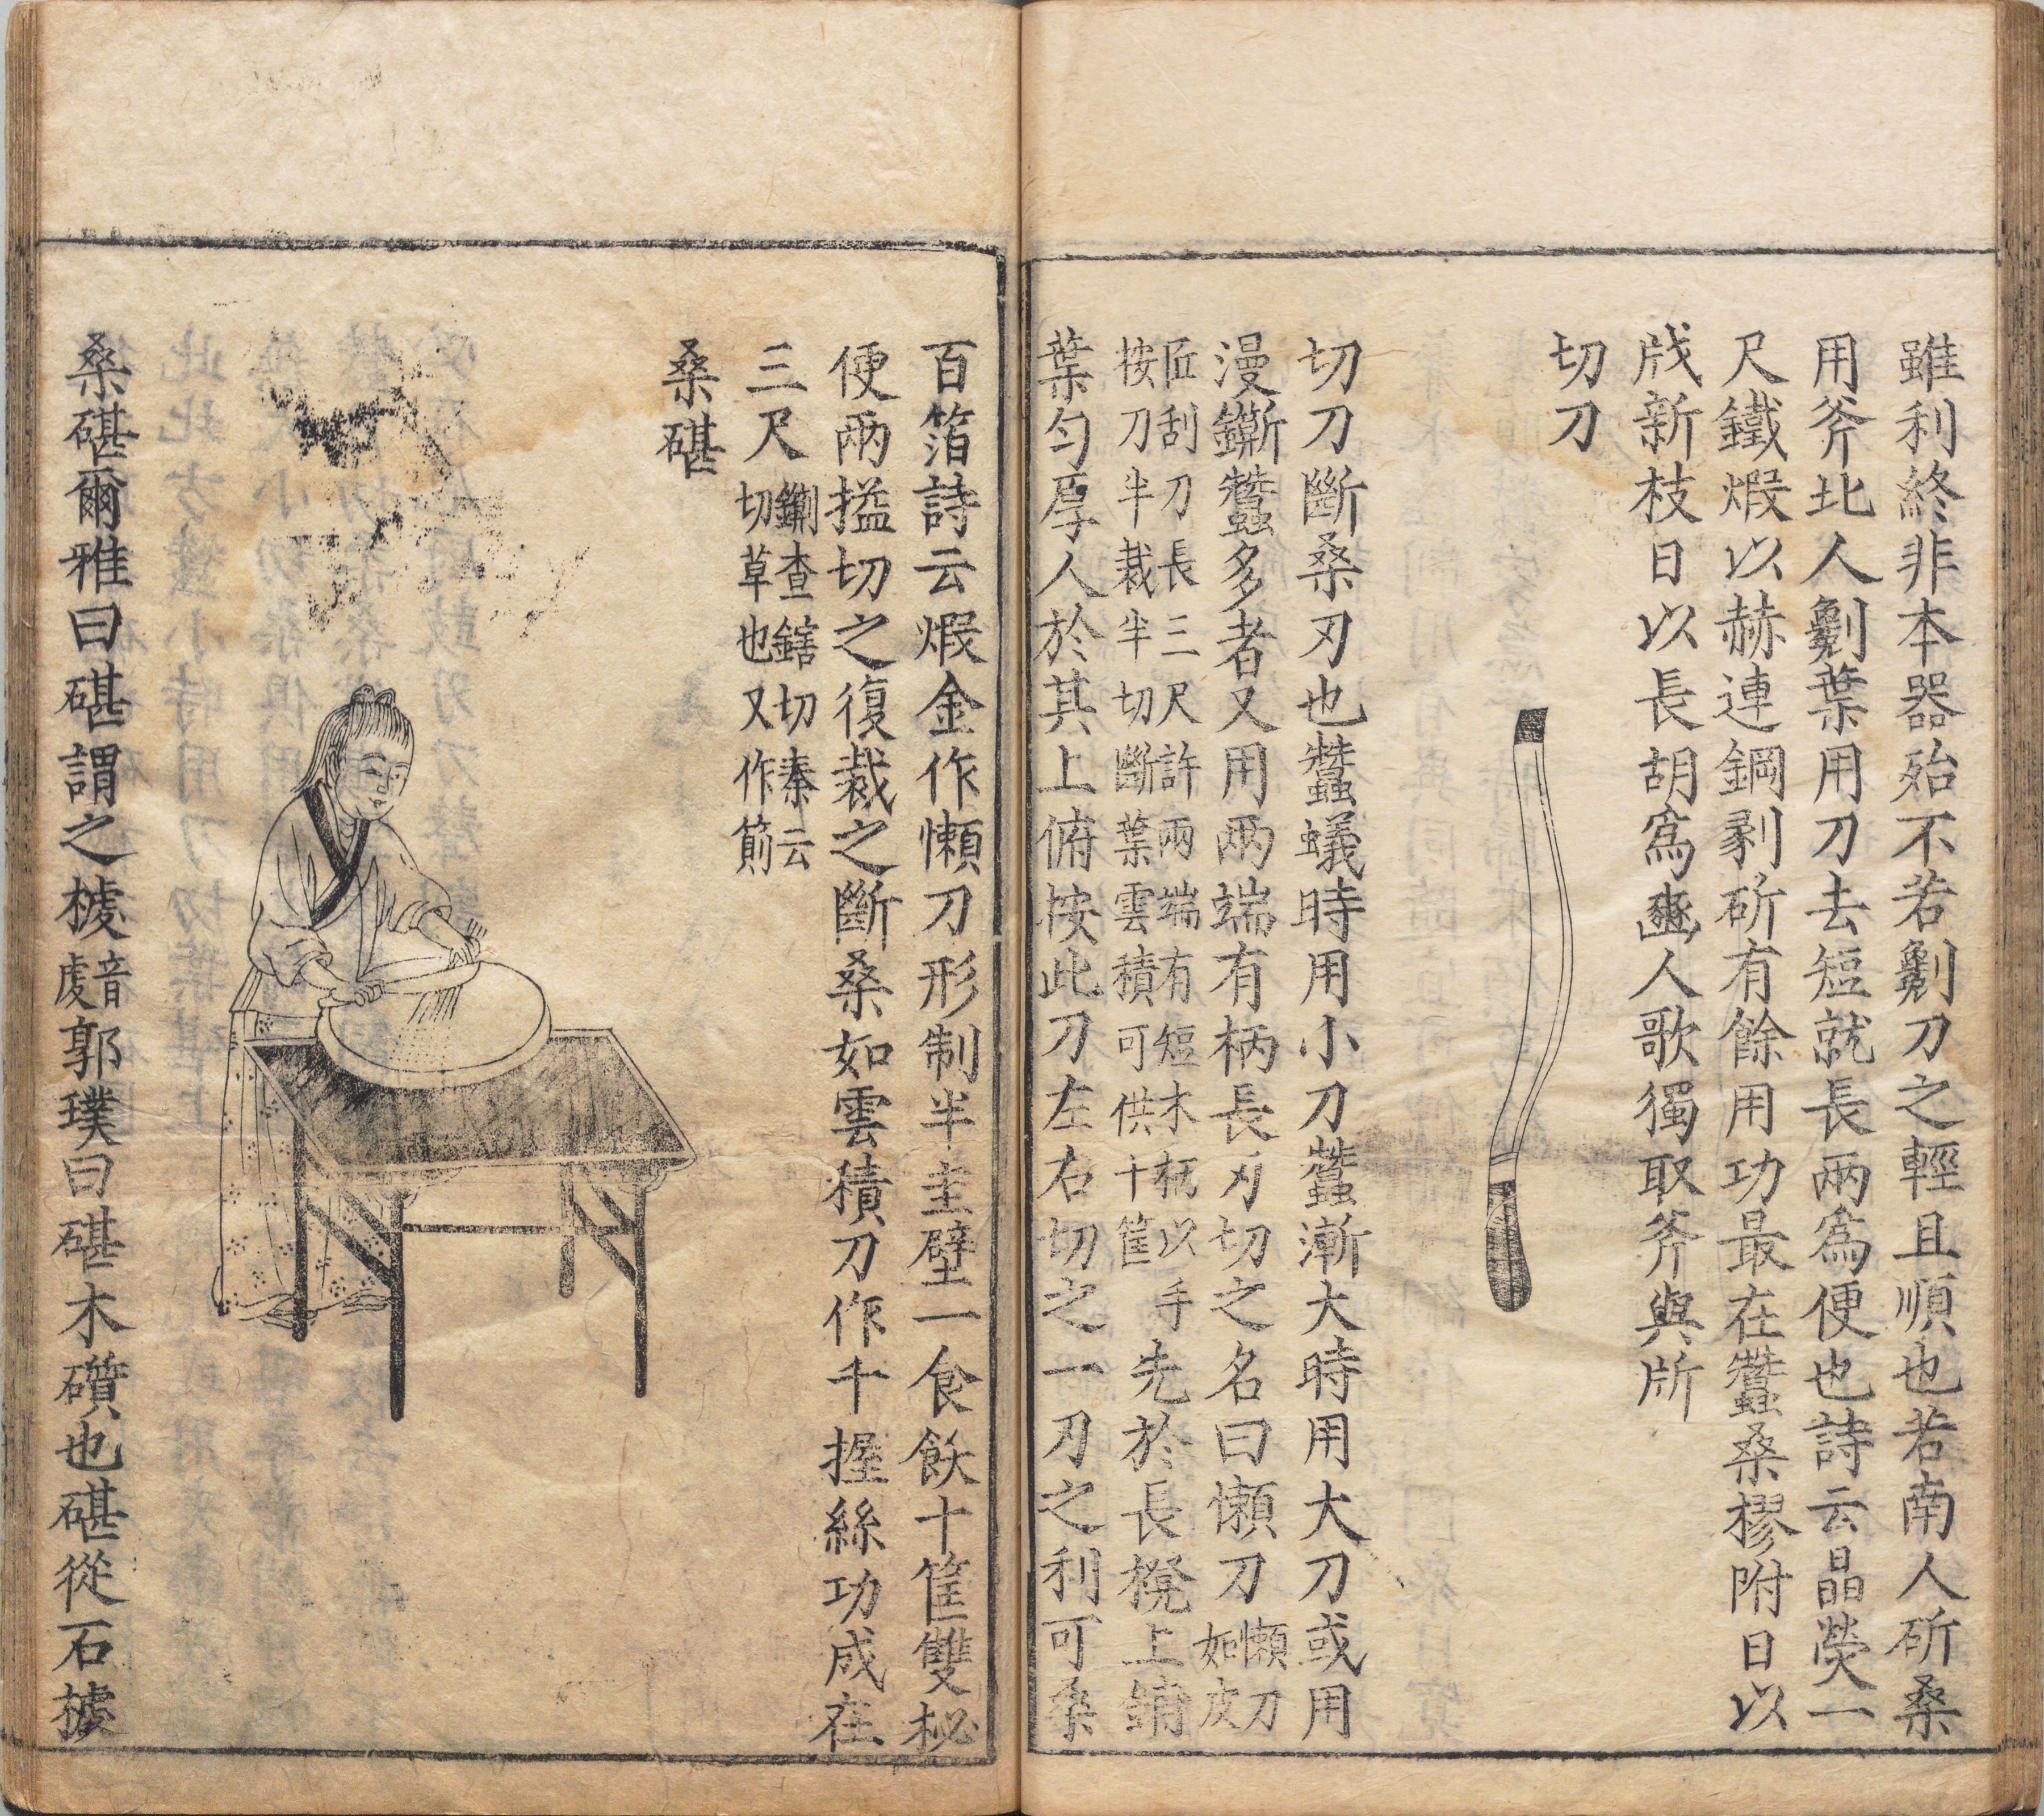 雖利終非本器殆不若劖刀之輕且順也若南人斫桑
用斧北人劖葉用刀去短就長兩為便也詩云晶熒一
尺鐵煆以赫連鋼剥斫有餘用功最在蠶桑樛附日以
戕新枝日以長胡為豳人歌獨取斧與斨
切刀
切刀斷桑刃也蠶蟻時用小刀蠶漸大時用大刀或用
漫鐁蠶多者又用兩端有柄長刃切之名曰懶刀懶刀如皮
匠刮刀長三尺許兩端有短木柄以手按刀半裁半切斷葉雲積可供十筐先於長櫈上鋪
葉勻厚人於其上俯按此刀左右切之一刃之利可桑
百箔詩云煆金作懶刀形制半圭壁一食飫十筐雙柲
便兩搤切之復裁之斷桑如雲積刀作千握絲功成在
三尺鍘查鎋切秦云切草也又作
桑碪
桑碪爾雅曰碪謂之榩音虔郭璞曰碪木礩也碪從石